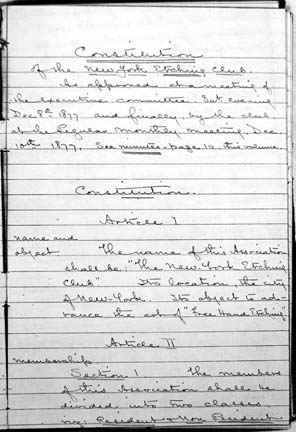 Constitution
of the New York Etching Club.
As approved at a meeting of
the executive committee. Sat evening
Dec 8th 1877 and finally by the club
at the Regular Monthly meeting Dec
10th 1877. See minutes - page 10 this volume.
Constitution.
Article I
name and
object. The name of this Association
shall be: "The New-York Etching
Club" Its location, the city
of New-York. Its object to ad-
vance the art of "Free Hand Etching".
Article II
membership
Section 1 The members
of this Association shall be
divided into two classes
viz: Resident & Non Resident